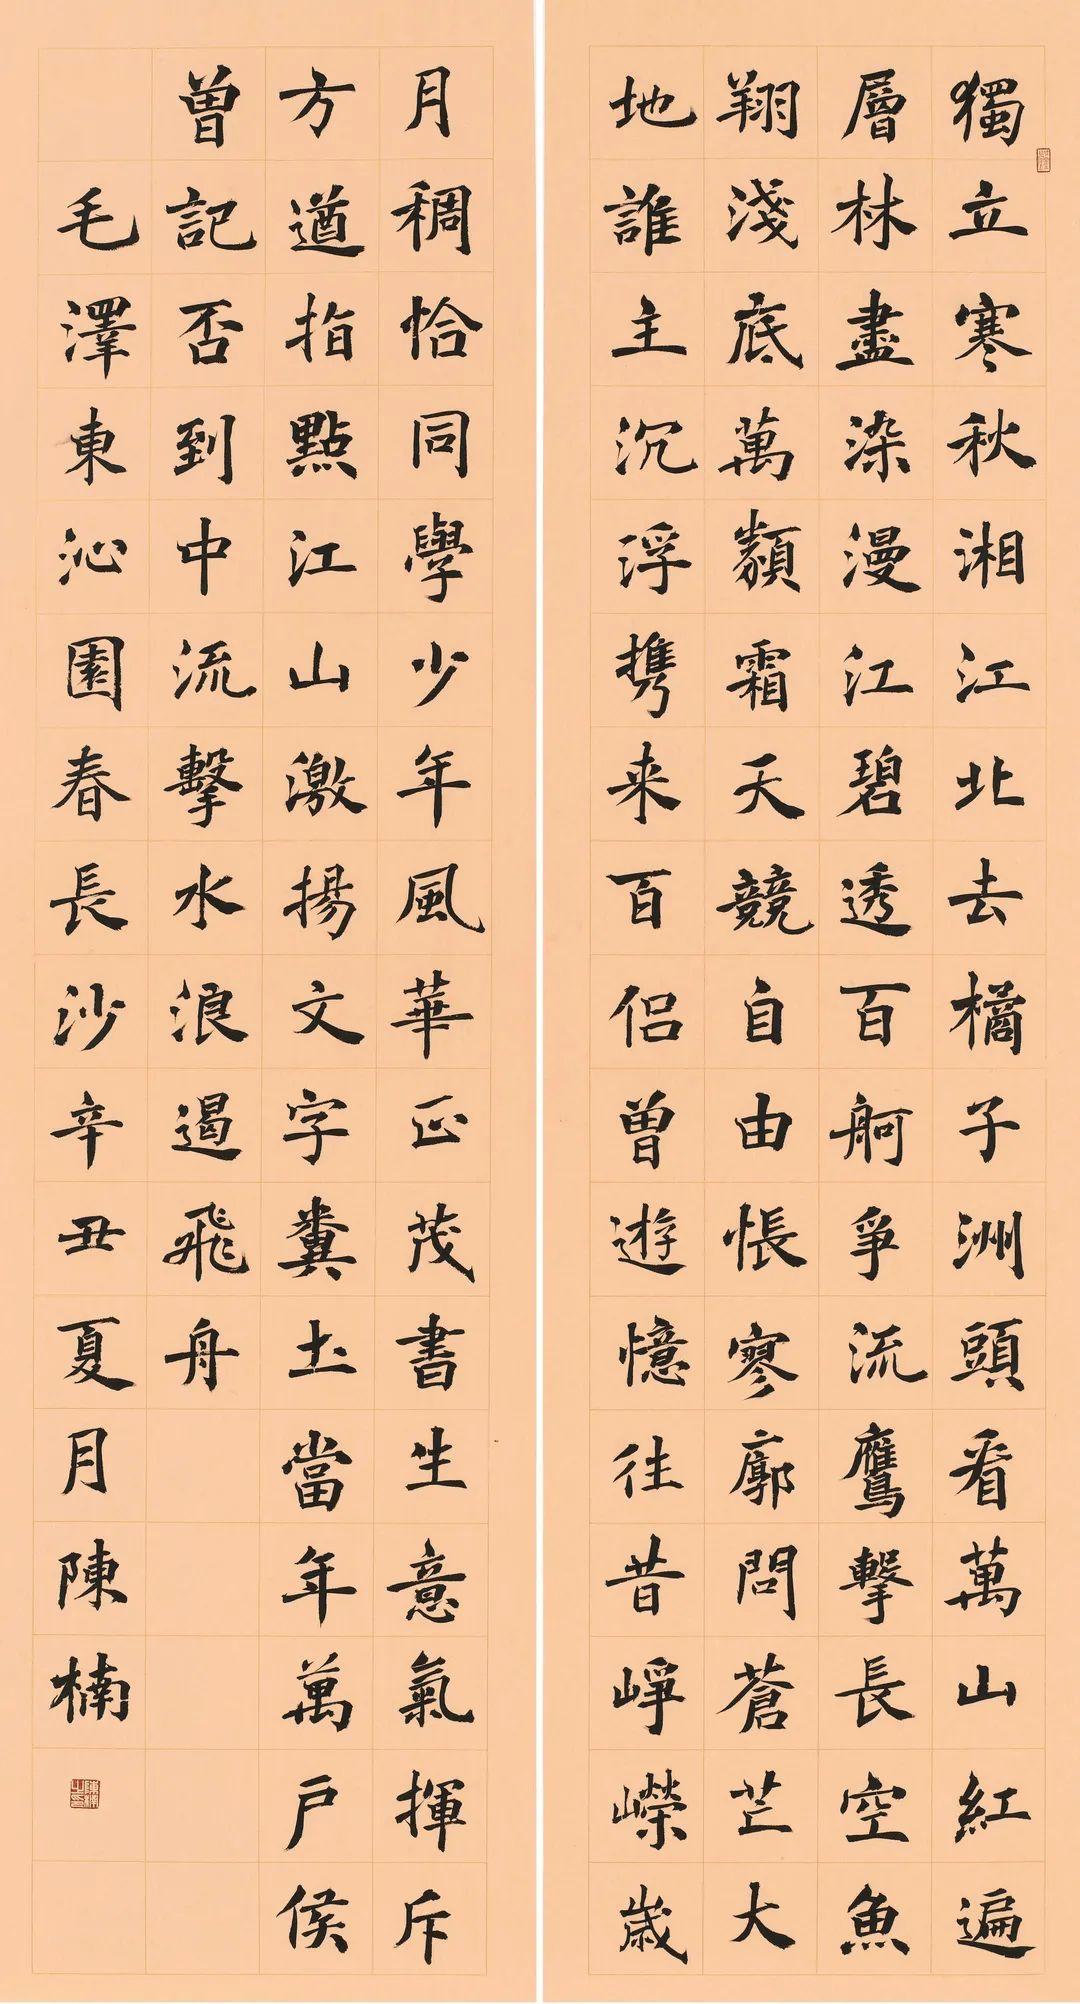 獨立寒秋湘江北去橘子洲頭看萬山紅遍
層林盡染漫江碧透百舸爭流鷹擊長空魚
翔淺底萬類霜天競自由悵寥廓問蒼芒大
地誰主沉浮携来百侣曾遊憶往昔崢嶸歲
月稠恰同學少年風華正茂書生意氣揮斥
方遒指點江山激揚文字糞土當年萬户侯
曾記否到中流擊水浪遏飛舟
毛澤東沁園春長沙辛丑夏月陳楠